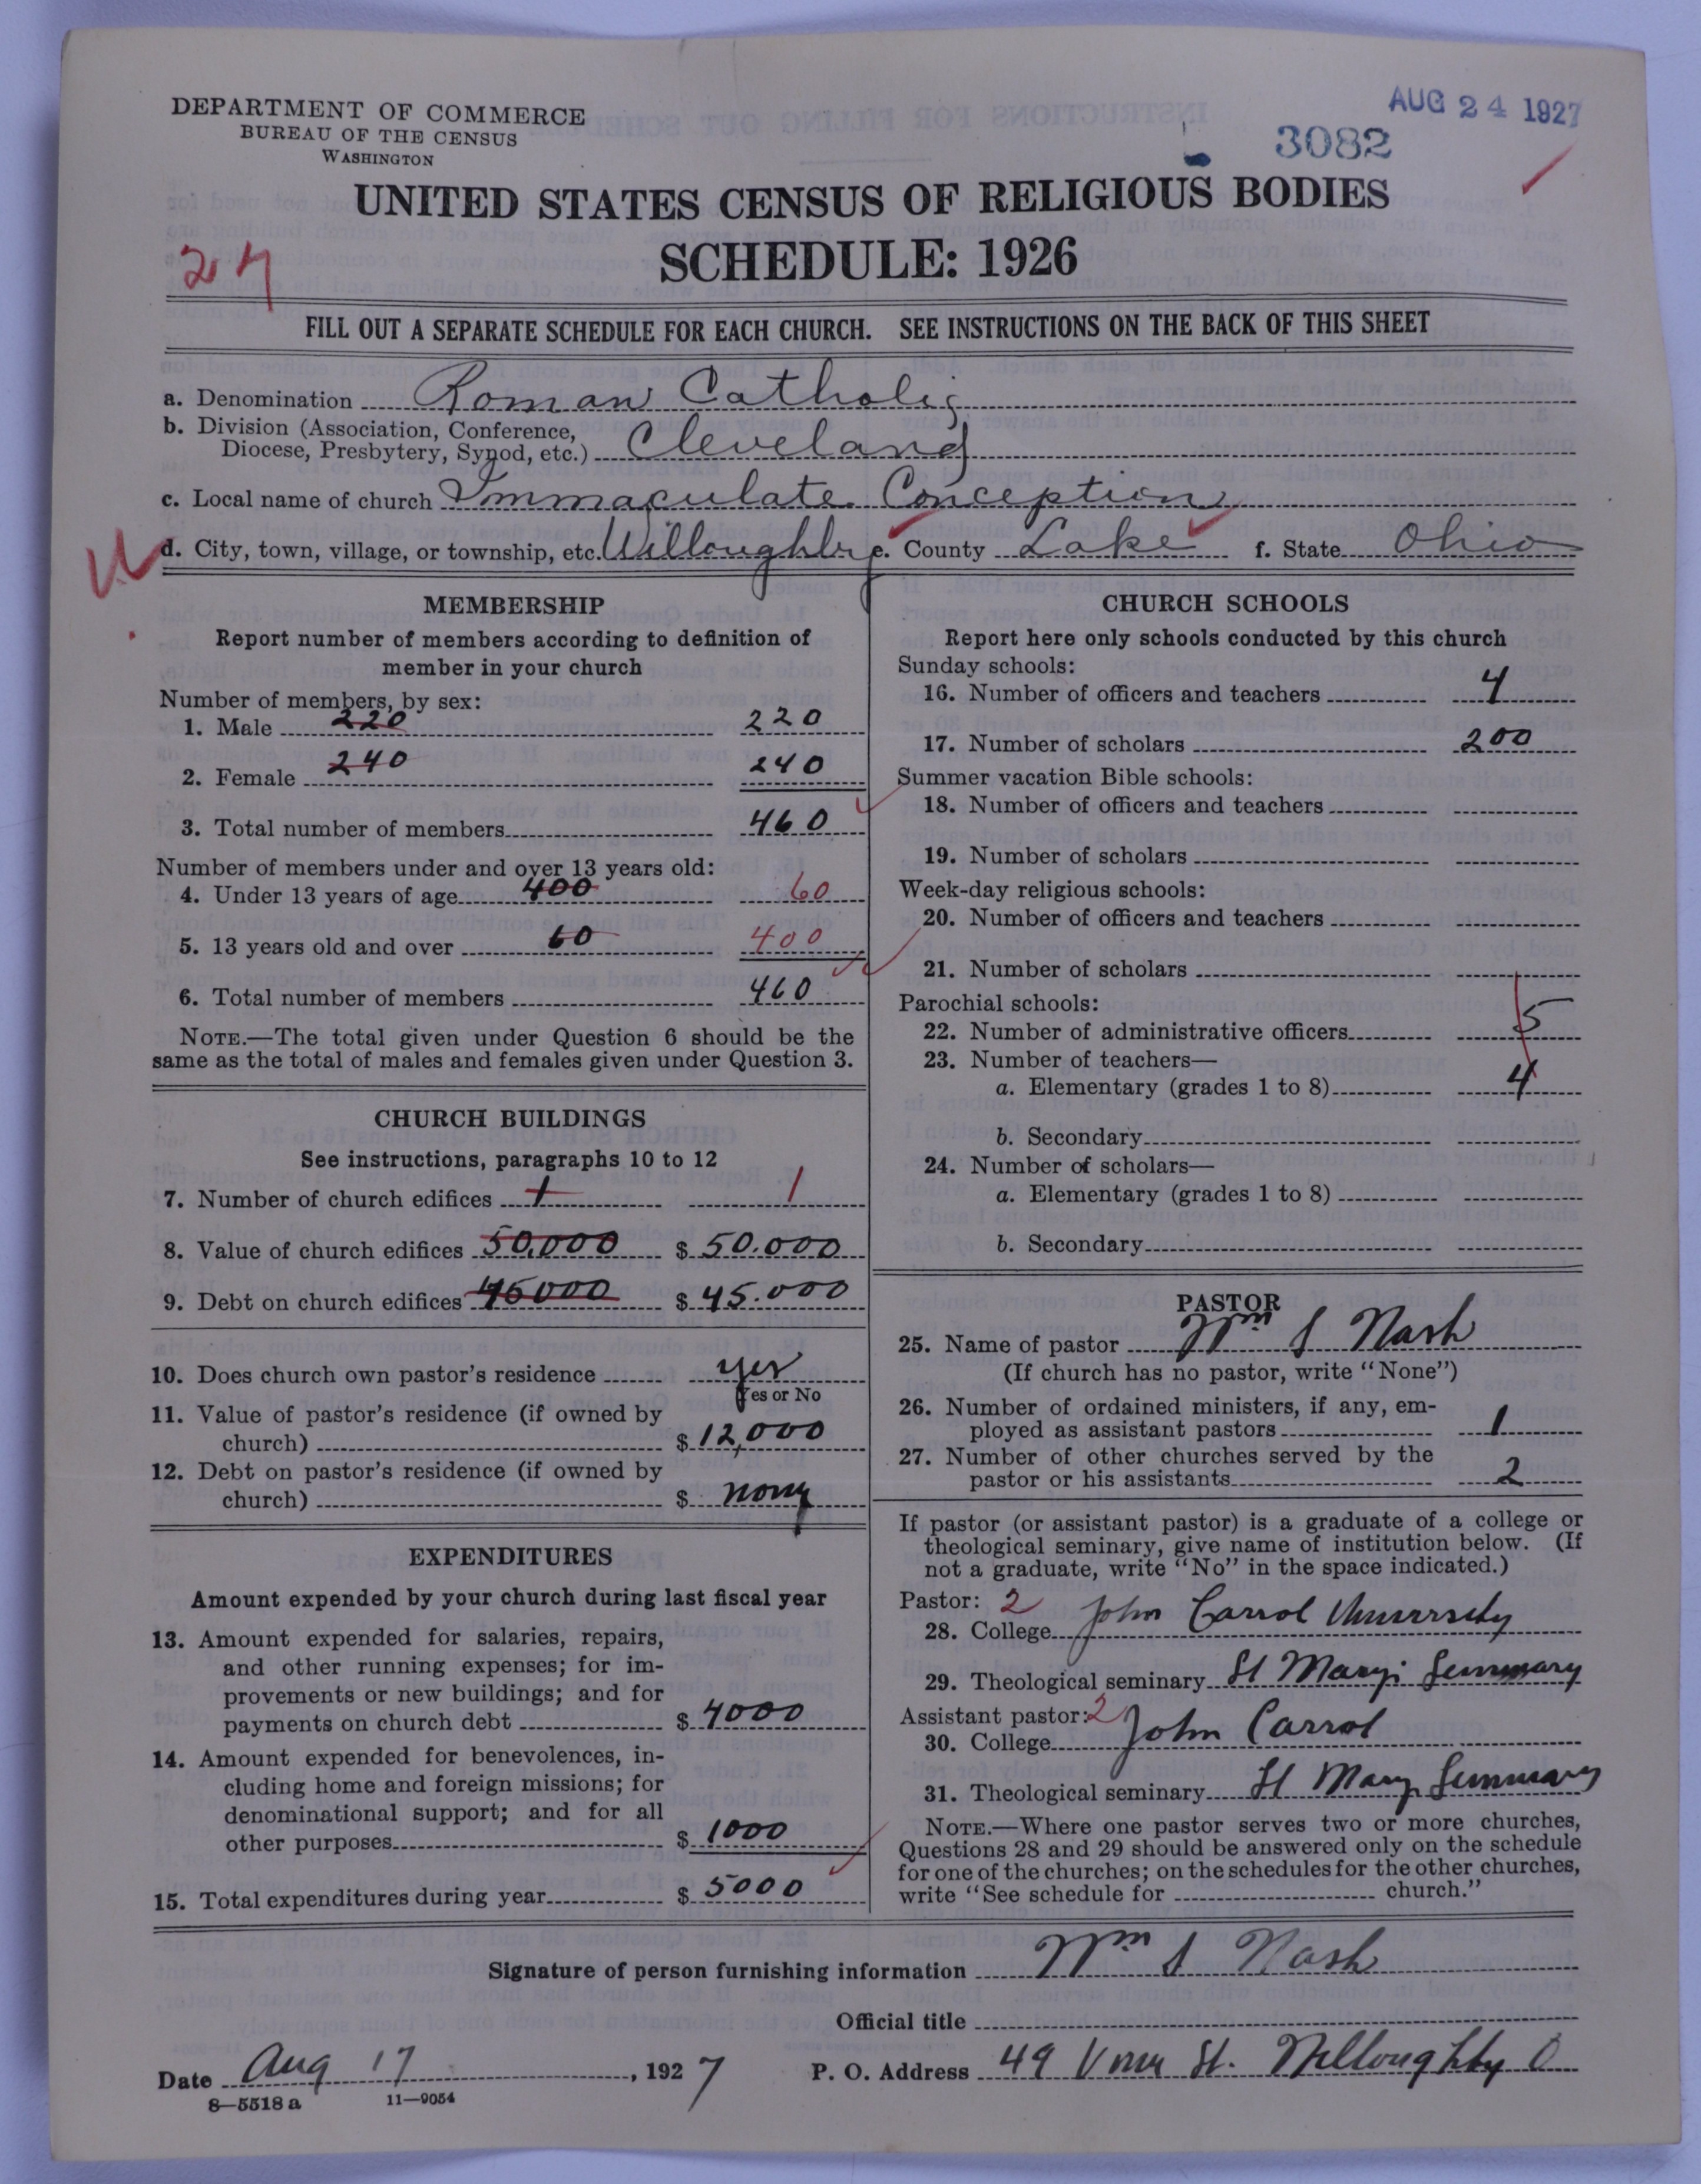 DEPARTMENT OF COMMERCE
BUREAU OF THE CENSUS
WASHINGTON
AUG 24 1927
3082
UNITED STATES CENSUS OF RELIGIOUS BODIES
SCHEDULE: 1926
FILL OUT A SEPARATE SCHEDULE FOR EACH CHURCH. SEE INSTRUCTIONS ON THE BACK OF THIS SHEET
a. Denomination Roman Catholic
b. Division (Association, Conference,
Diocese, Presbytery, Synod, etc.) Cleveland
c. Local name of church Immaculate Conception
d. City, town, village, or township, etc. Willoughby e. County Lake f. State Ohio
MEMBERSHIP
Report number of members according to definition of
member in your church
Number of members, by sex:
1. Male 220 220
2. Female 240 240
3. Total number of members 460
Number of members under and over 13 years old:
4. Under 13 years of age 400 60
5. 13 years old and over 60 400
6. Total number of members 460
NOTE.—The total given under Question 6 should be the
same as the total of males and females given under Question 3.
CHURCH BUILDINGS
See instructions, paragraphs 10 to 12
7. Number of church edifices 1 1
8. Value of church edifices 50,000 $ 50.000
9. Debt on church edifices 45000 $ 45.000
10. Does church own pastor's residence yes
Yes or No
11. Value of pastor's residence (if owned by
church) $ 12,000
12. Debt on pastor's residence (if owned by
church) $ none
EXPENDITURES
Amount expended by your church during last fiscal year
13. Amount expended for salaries, repairs,
and other running expenses; for im-
provements or new buildings; and for
payments on church debt $ 4000
14. Amount expended for benevolences, in-
cluding home and foreign missions; for
denominational support; and for all
other purposes $ 1000
15. Total expenditures during year $ 5000
CHURCH SCHOOLS
Report here only schools conducted by this church
Sunday schools:
16. Number of officers and teachers 4
17. Number of scholars 200
Summer vacation Bible schools:
18. Number of officers and teachers
19. Number of scholars
Week-day religious schools:
20. Number of officers and teachers
21. Number of scholars
Parochial schools:
22. Number of administrative officers 5
23. Number of teachers—
a. Elementary (grades 1 to 8) 4
b. Secondary
24. Number of scholars—
a. Elementary (grades 1 to 8)
b. Secondary
PASTOR
25. Name of pastor Wm S Nash
(If church has no pastor, write "None")
26. Number of ordained ministers, if any, em-
ployed as assistant pastors 1
27. Number of other churches served by the
pastor or his assistants 2
If pastor (or assistant pastor) is a graduate of a college or
theological seminary, give name of institution below. (If
not a graduate, write "No" in the space indicated.)
Pastor: 2
28. College John Carrol University
29. Theological seminary St Marys Seminary
Assistant pastor: 2
30. College John Carrol
31. Theological seminary St Mary Seminary
NOTE.—Where one pastor serves two or more churches,
Questions 28 and 29 should be answered only on the schedule
for one of the churches; on the schedules for the other churches,
write "See schedule for church."
Signature of person furnishing information Wm S Nash
Official title
Date Aug 17, 1927 P. O. Address 49 St. Willoughby O
8—5518 a 11—9054